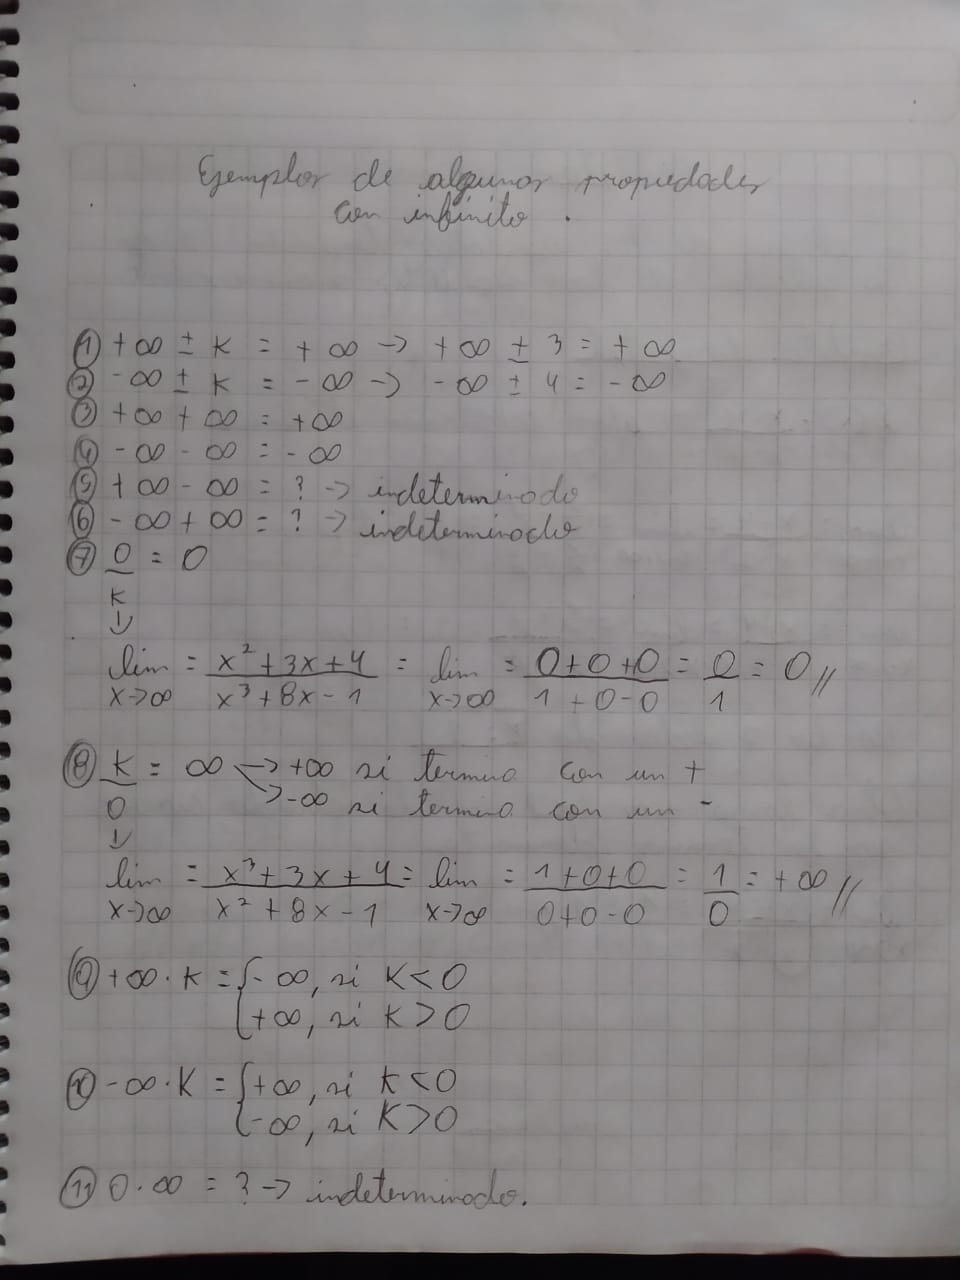 Ejemplos de algunas propiedades
con infinito.
① +∞ ± K = +∞ → +∞ ± 3 = +∞
② -∞ ± K = -∞ → -∞ ± 4 = -∞
③ +∞ + ∞ = +∞
④ -∞ - ∞ = -∞
⑤ +∞ - ∞ = ? → indeterminado
⑥ -∞ + ∞ = ? → indeterminado
⑦ 0/K = 0
↓
lim x→∞ = (x² + 3x + 4)/(x³ + 8x - 1) = lim x→∞ = (0+0+0)/(1+0-0) = 0/1 = 0 //
⑧ K/0 = ∞ → +∞ si termina con un +
→ -∞ si termina con un -
↓
lim x→∞ = (x³ + 3x + 4)/(x² + 8x - 1) = lim x→∞ = (1+0+0)/(0+0-0) = 1/0 = +∞ //
⑨ +∞ · K = { -∞, si K < 0
+∞, si K > 0
⑩ -∞ · K = { +∞, si K < 0
-∞, si K > 0
⑪ 0 · ∞ = ? → indeterminado.